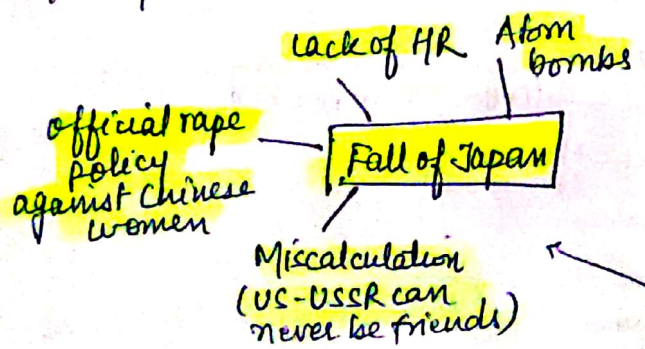 Lack of HR
Atom
bombs
official rape
policy
against Chinese
women
Fall of Japan
Miscalculation
(US-USSR can
never be friends)